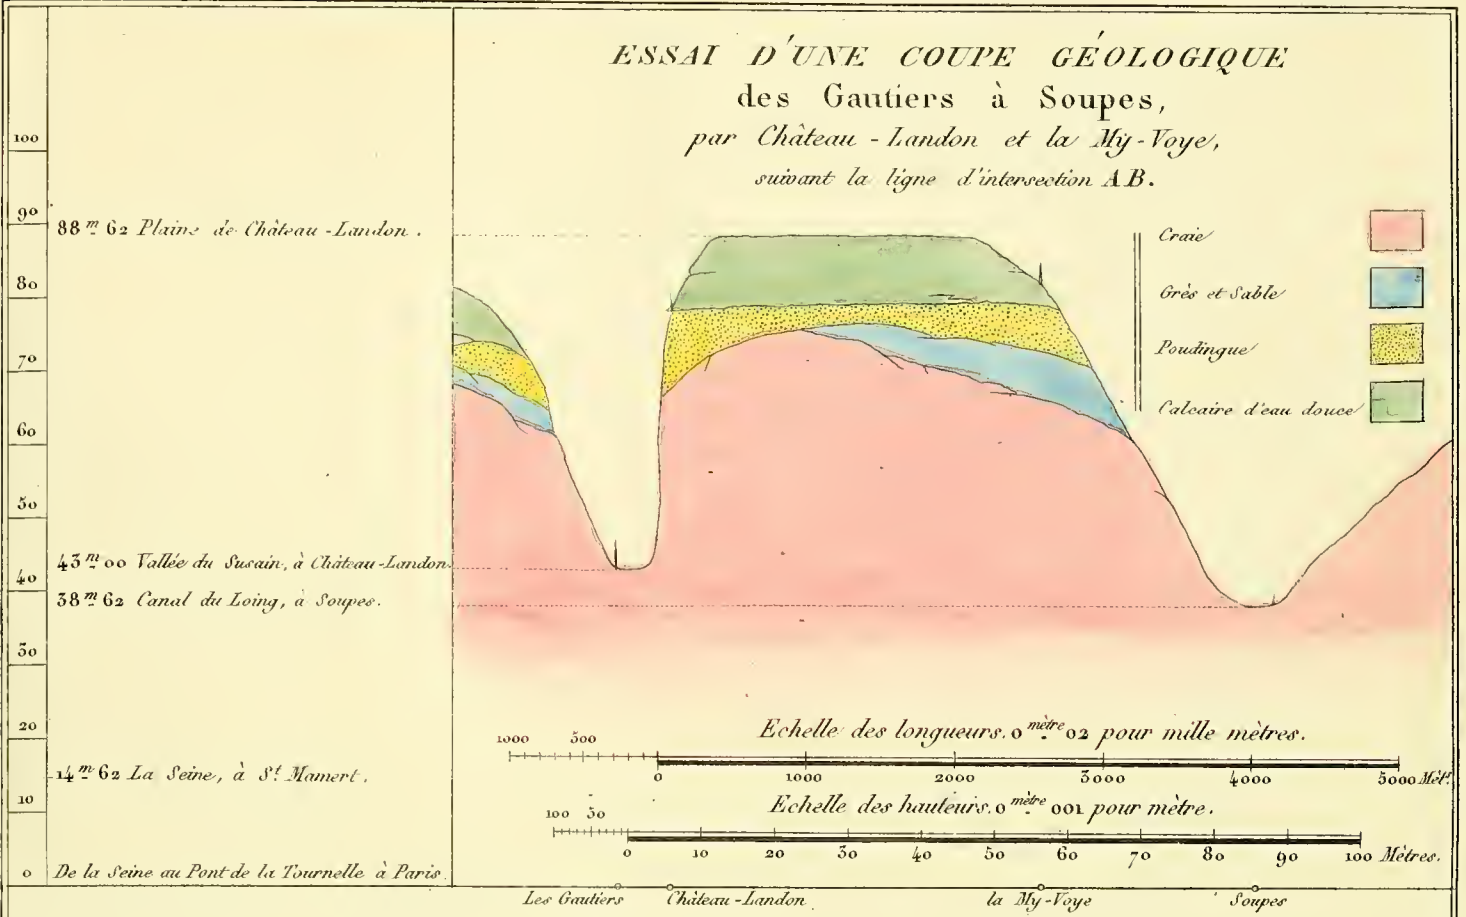 ESSAI D'UNE COUPE GÉOLOGIQUE
des Gautiers à Soupes,
par Château-Landon et la Mÿ-Voye,
suivant la ligne d'intersection AB.
100
90
88m 62 Plaine de Château-Landon.
80
70
60
50
43m 00 Vallée du Susain, à Château-Landon
40
38m 62 Canal du Loing, à Soupes.
30
20
14m 62 La Seine, à St. Mamert.
10
0 De la Seine au Pont de la Tournelle à Paris.
Craie
Grès et Sable
Poudingue
Calcaire d'eau douce
Echelle des longueurs. 0 mètre 02 pour mille mètres.
1000 500
0 1000 2000 3000 4000 5000 Mèt.
Echelle des hauteurs. 0 mètre 001 pour mètre.
100 50
0 10 20 30 40 50 60 70 80 90 100 Mètres.
Les Gautiers Château-Landon la Mÿ-Voye Soupes